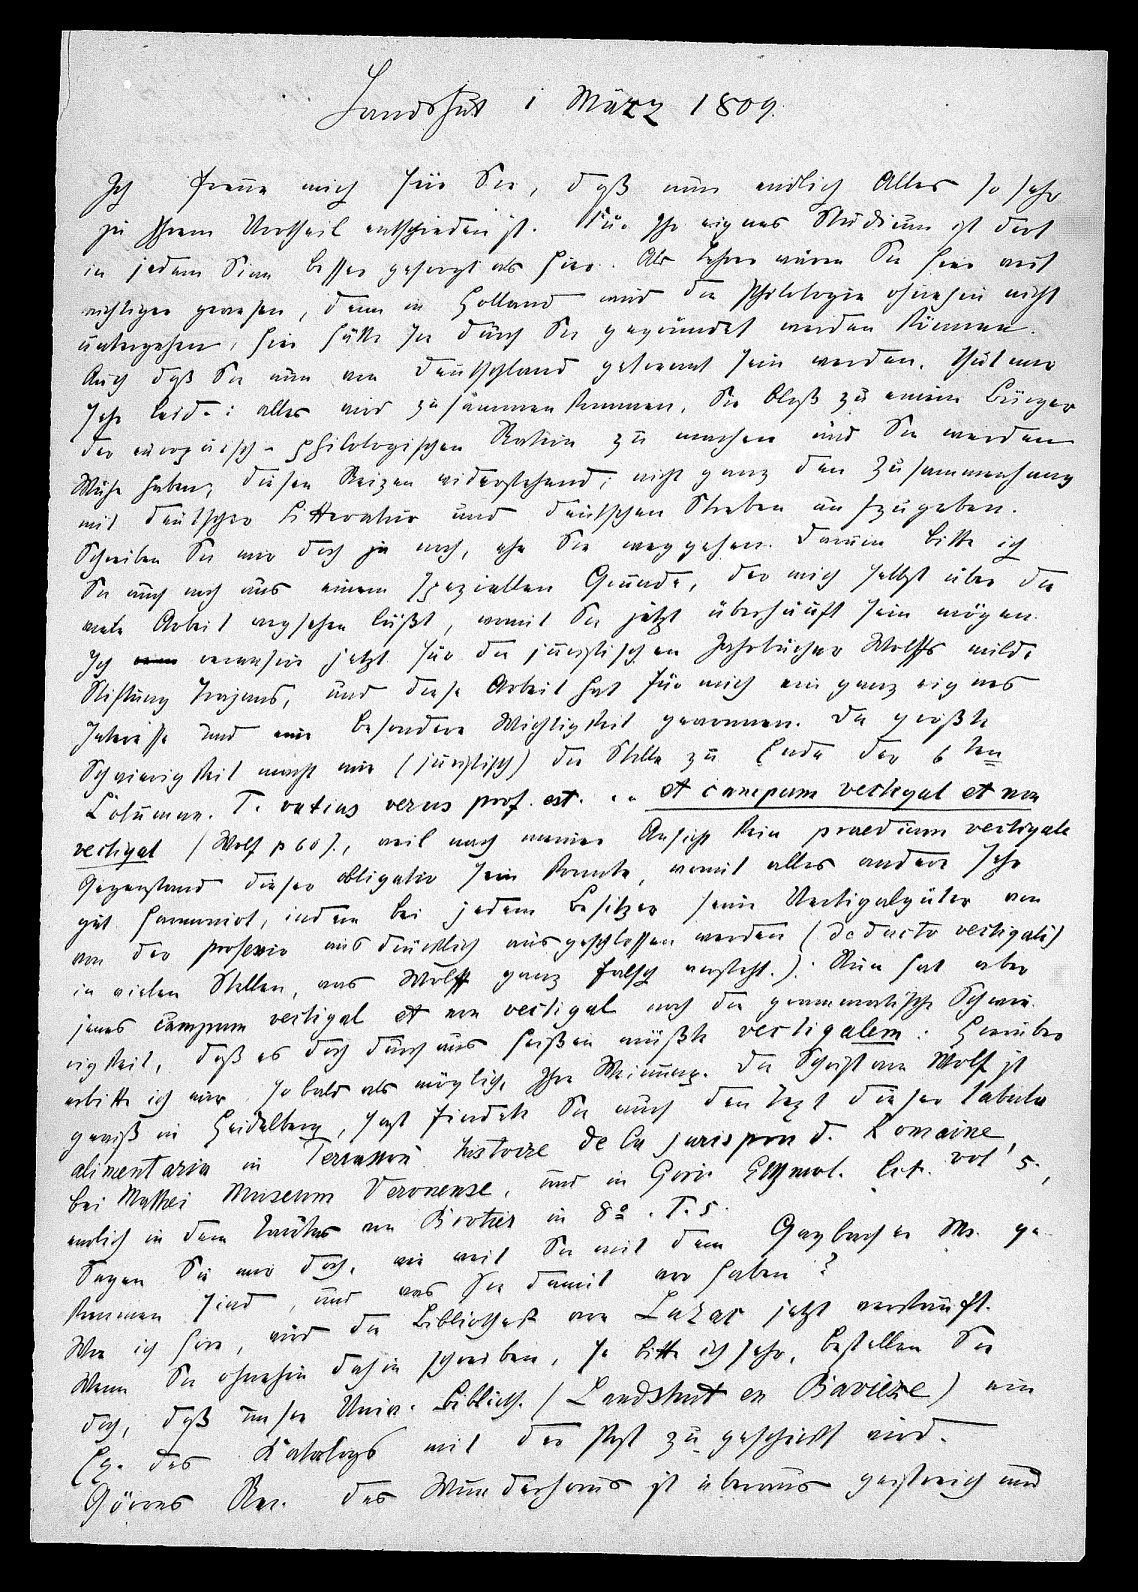 Landshut 1 März 1809.
Ich freue mich für Sie, daß nun endlich Alles so sehr
zu Ihrem Vortheil entschieden ist. Für Ihr eignes Studium ist dort
in jedem Sinn besser gesorgt als hier. Als Lehrer wären Sie hier weit
wichtiger gewesen, denn in Holland wird die Philologie ohnehin nicht
untergehen, hier hätte sie durch Sie gegründet werden können.
Auch daß Sie nun von Deutschland getrennt sein werden, thut mir
sehr leid: alles wird zusammen kommen, Sie bloß zu einem Bürger
der europäisch-philologischen Nation zu machen und Sie werden
Mühe haben, diesen Reizen widerstehend, nicht ganz den Zusammenhang
mit deutscher Litteratur und deutschem Streben aufzugeben.
Schreiben Sie mir doch ja noch, ehe Sie weggehen. Darum bitte ich
Sie auch noch aus einem speziellen Grunde, der mich selbst über die
viele Arbeit wegsehen läßt, womit Sie jetzt überhäuft sein mögen.
Ich recensire jetzt für die juristischen Jahrbücher Wolffs milde
Stiftung Trajans, und diese Arbeit hat für mich ein ganz eignes
Interesse und eine besondere Wichtigkeit gewonnen. Die größte
Schwierigkeit macht mir (juristisch) die Stelle zu Ende der 6ten
Columne. T. vatius verus prof. est. .. et campum vectigal et non
vectigal (Wolf p 60)., weil nach meiner Ansicht kein praedium vectigale
Gegenstand dieser obligatio sein konnte, womit alles andere sehr
gut harmonirt, indem bei jedem Besitzer seine Vectigalgüter von
von der professio ausdrücklich ausgeschlossen werden (deducto vectigali)
in vielen Stellen, was Wolff ganz falsch versteht.). Nun hat aber
jenes campum vectigal et non vectigal noch die grammatische Schwie-
rigkeit, daß es doch durchaus heißen müßte vectigalem. Hierüber
erbitte ich mir so bald als möglich Ihre Meinung. Die Schrift von Wolf ist
gewiß in Heidelberg, sonst finden Sie auch den Text dieser tabula
alimentaria in Terrasson histoire de la jurisprud. Romaine,
bei Maffei Museum Veronense, und in Gori Symbol. lit. vol 5.,
endlich in dem Tacitus von Brotier in 8º. T. 5.
Sagen Sie mir doch, wie weit Sie mit dem Gaybacher Ms. ge-
kommen sind, und was Sie damit vor haben?
Wie ich höre, wird die Bibliothek von Luzac jetzt verkauft.
Wenn Sie ohnehin dahin schreiben, so bitte ich sehr, bestellen Sie
doch, daß unsrer Univ. Biblioth. (Landshut en Bavière) ein
Ex. des Katalogs mit der Post zu geschickt wird.
Görres Rec. des Wunderhorns ist überaus geistreich und